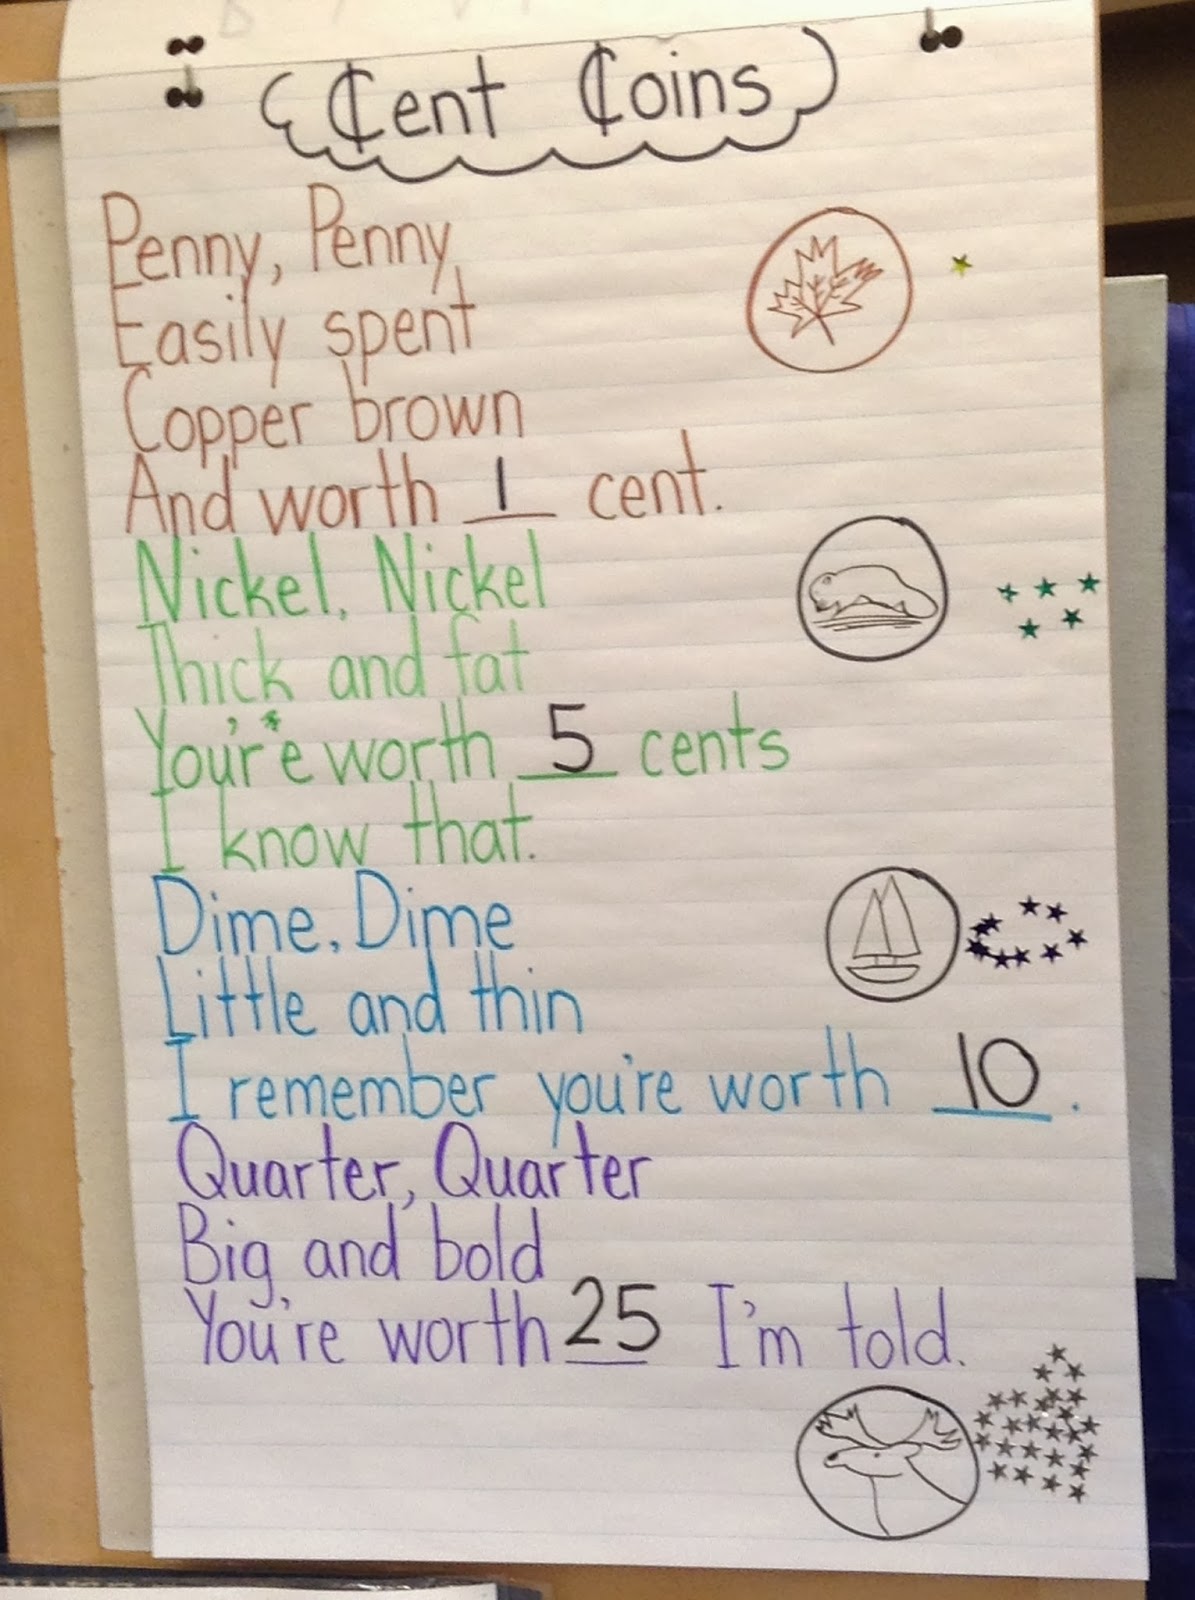 ¢ent ¢oins
Penny, Penny
Easily spent
Copper brown
And worth 1 cent.
Nickel, Nickel
Thick and fat
You're worth 5 cents
I know that.
Dime, Dime
Little and thin
I remember you're worth 10.
Quarter, Quarter
Big and bold
You're worth 25 I'm told.